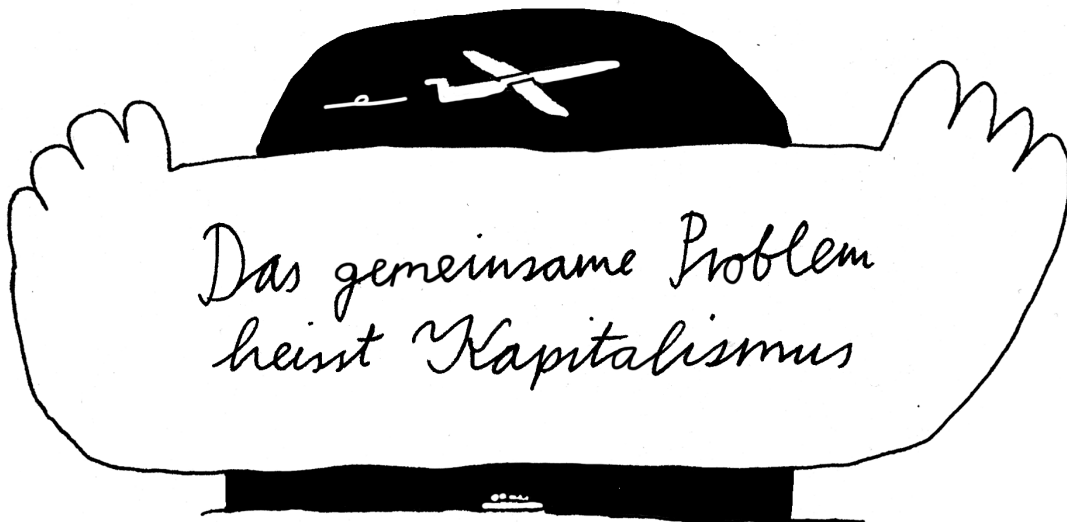 Das gemeinsame Problem
heisst Kapitalismus